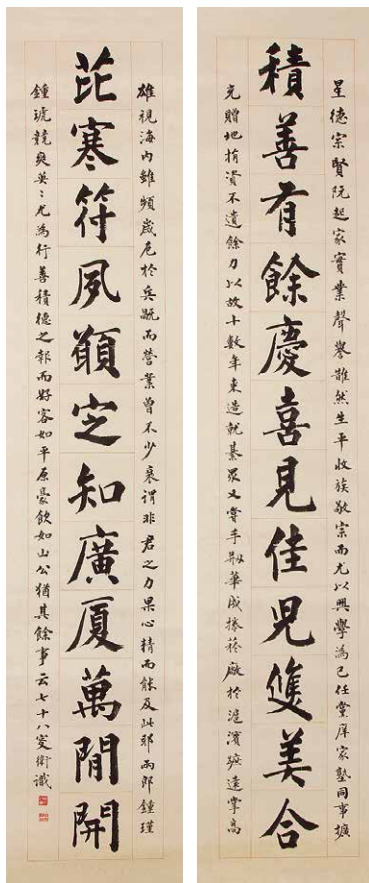 星德宗賢阮起家實業聲譽雝然生平收族敬宗而尤以興學為己任黨庠家塾同事擴
積善有餘慶喜見佳兒雙美合
充贈地捐資不遺餘力以故十數年來造就綦眾又嘗手剏華成菸廠於滬濱遠高
雄視海内雖頻歲厄於兵而營業曾不少衰謂非君之力果心精而能及此耶兩郎鍾瑾
芘寒符夙願定知廣厦萬間開
鍾琥競爽英々尤為行善積德之報而好客如平原豪飲如山公猶其餘事云七十八叟衛識